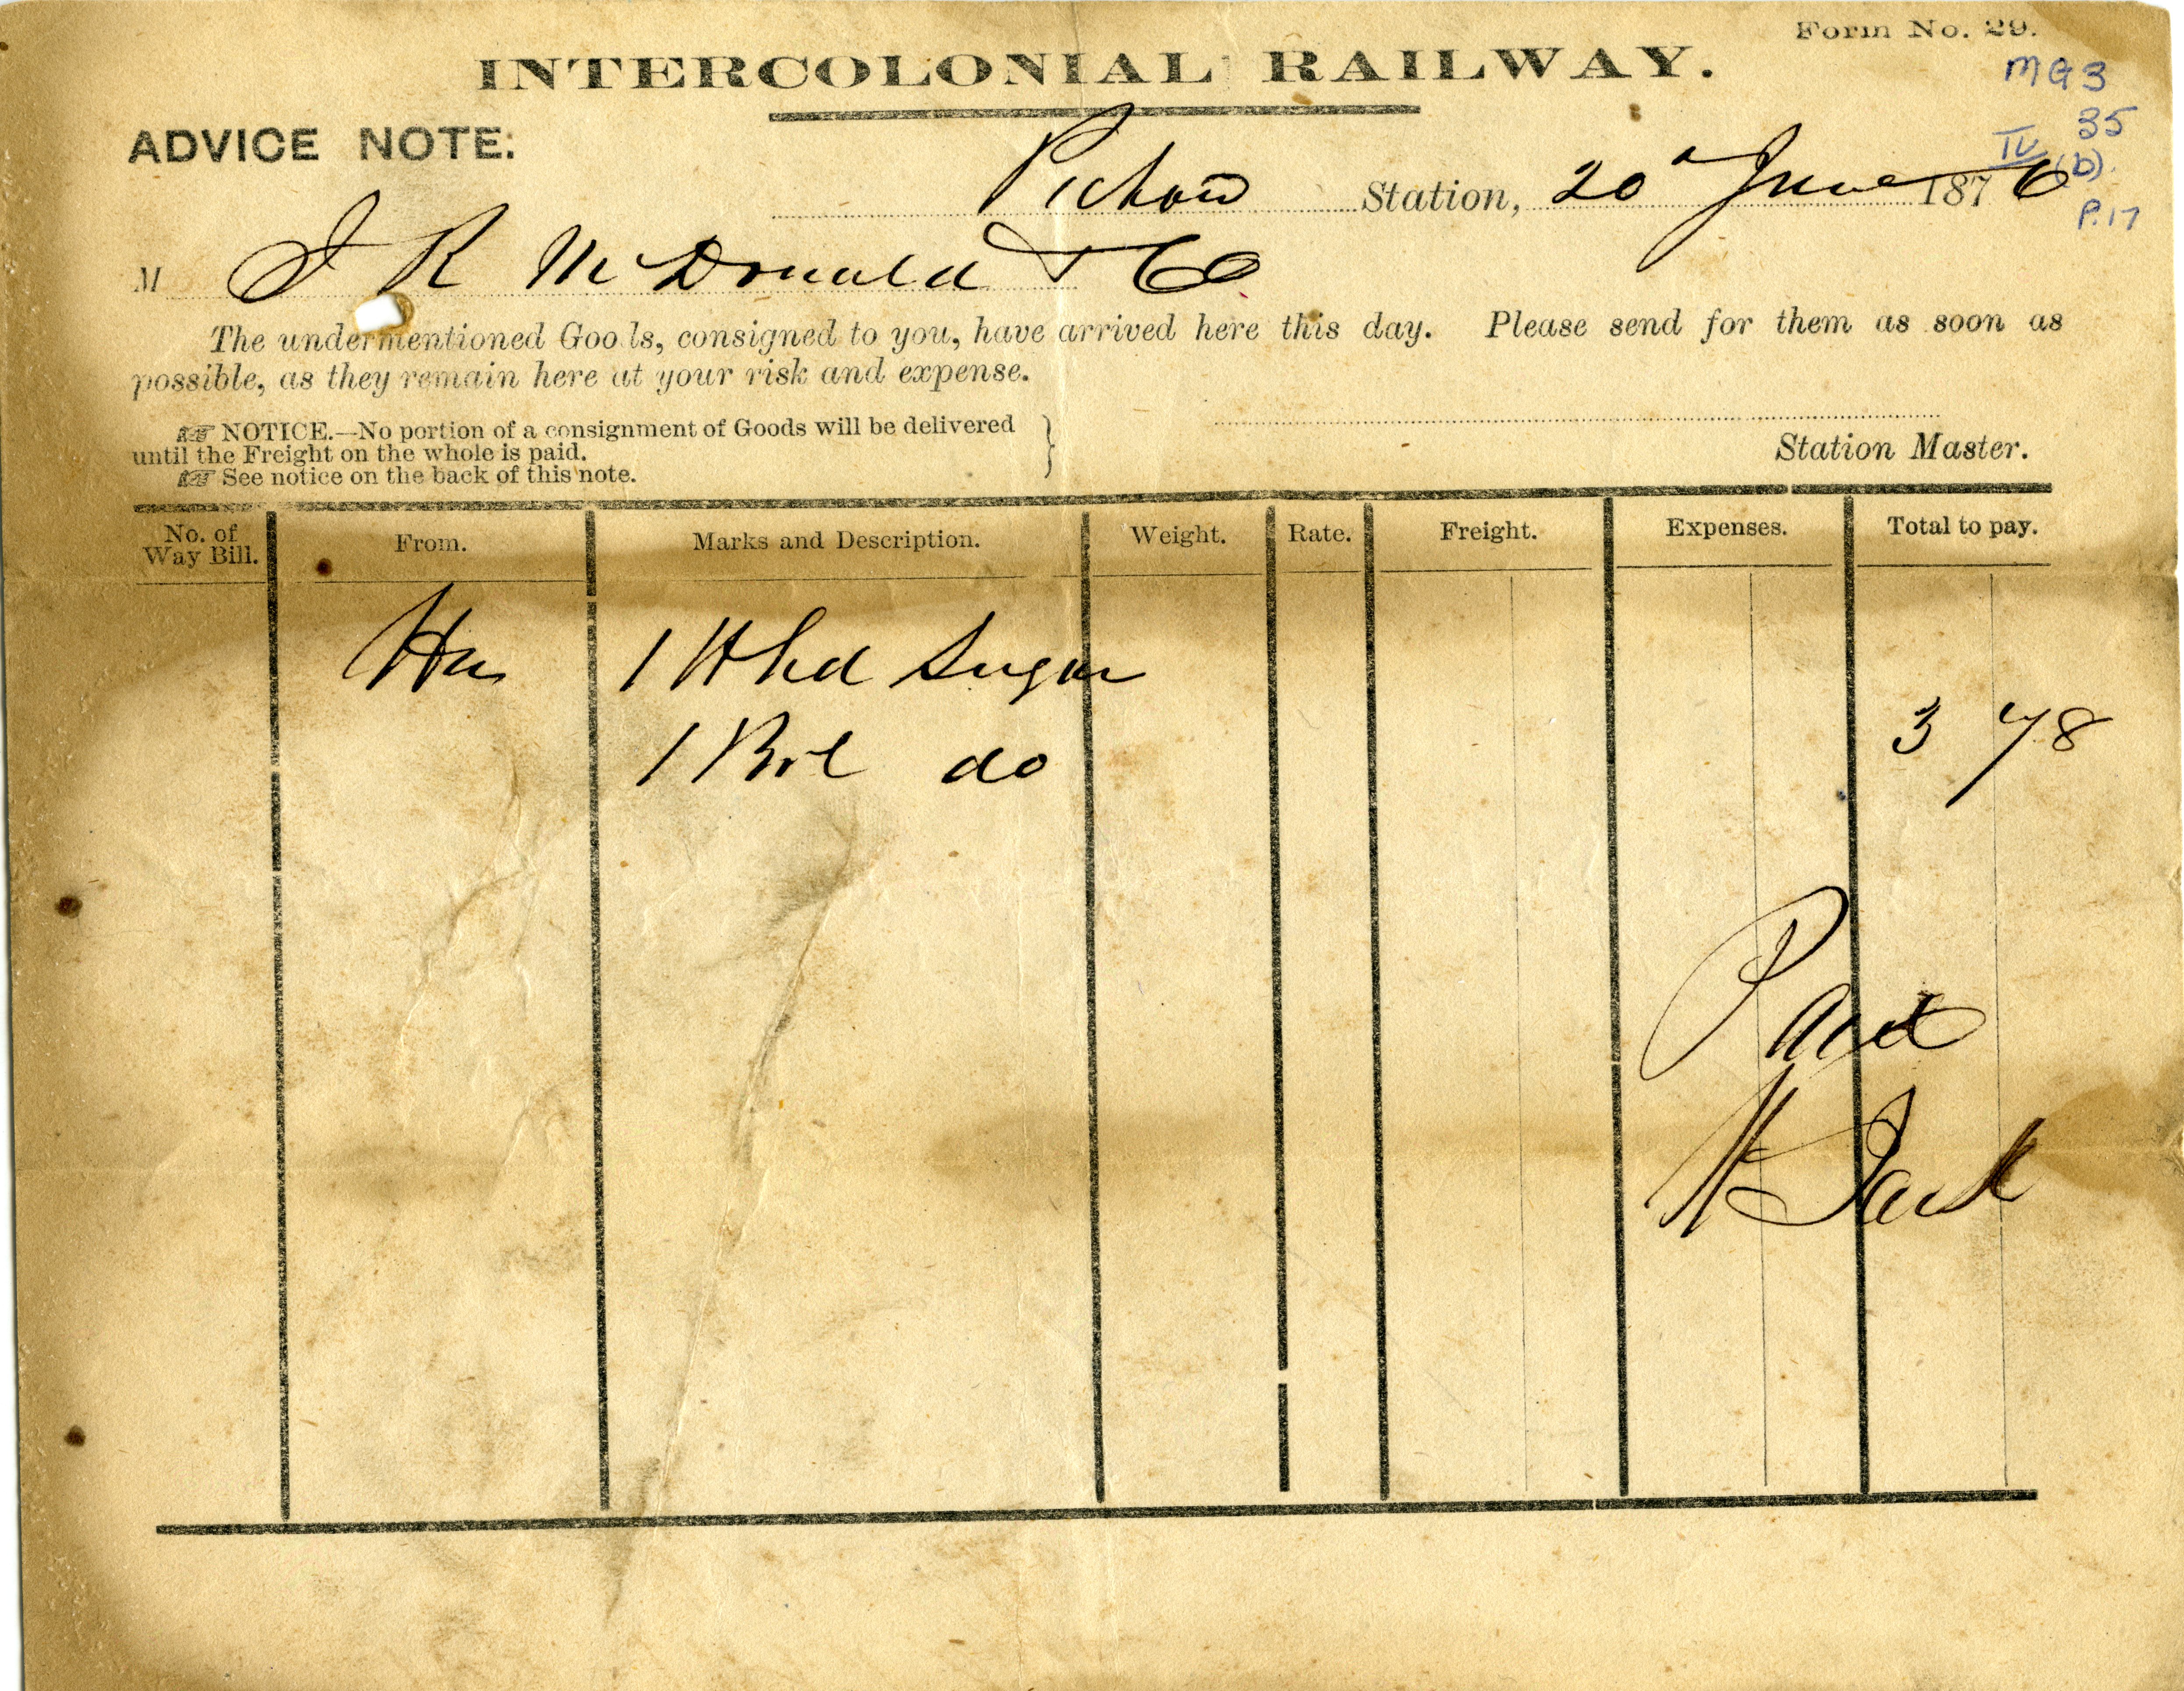 Form No. 29.
INTERCOLONIAL RAILWAY.
MG3
35
IV (b).
P.17
ADVICE NOTE:
Pictou Station, 20 June 1876
M J R McDonald & Co
The undermentioned Goods, consigned to you, have arrived here this day. Please send for them as soon as
possible, as they remain here at your risk and expense.
☞ NOTICE.—No portion of a consignment of Goods will be delivered
until the Freight on the whole is paid.
☞ See notice on the back of this note.
Station Master.
No. of Way Bill. From. Marks and Description. Weight. Rate. Freight. Expenses. Total to pay.
Hx 1 Hhd Sugar
1 Brl do 3 78
Paid
H Jack